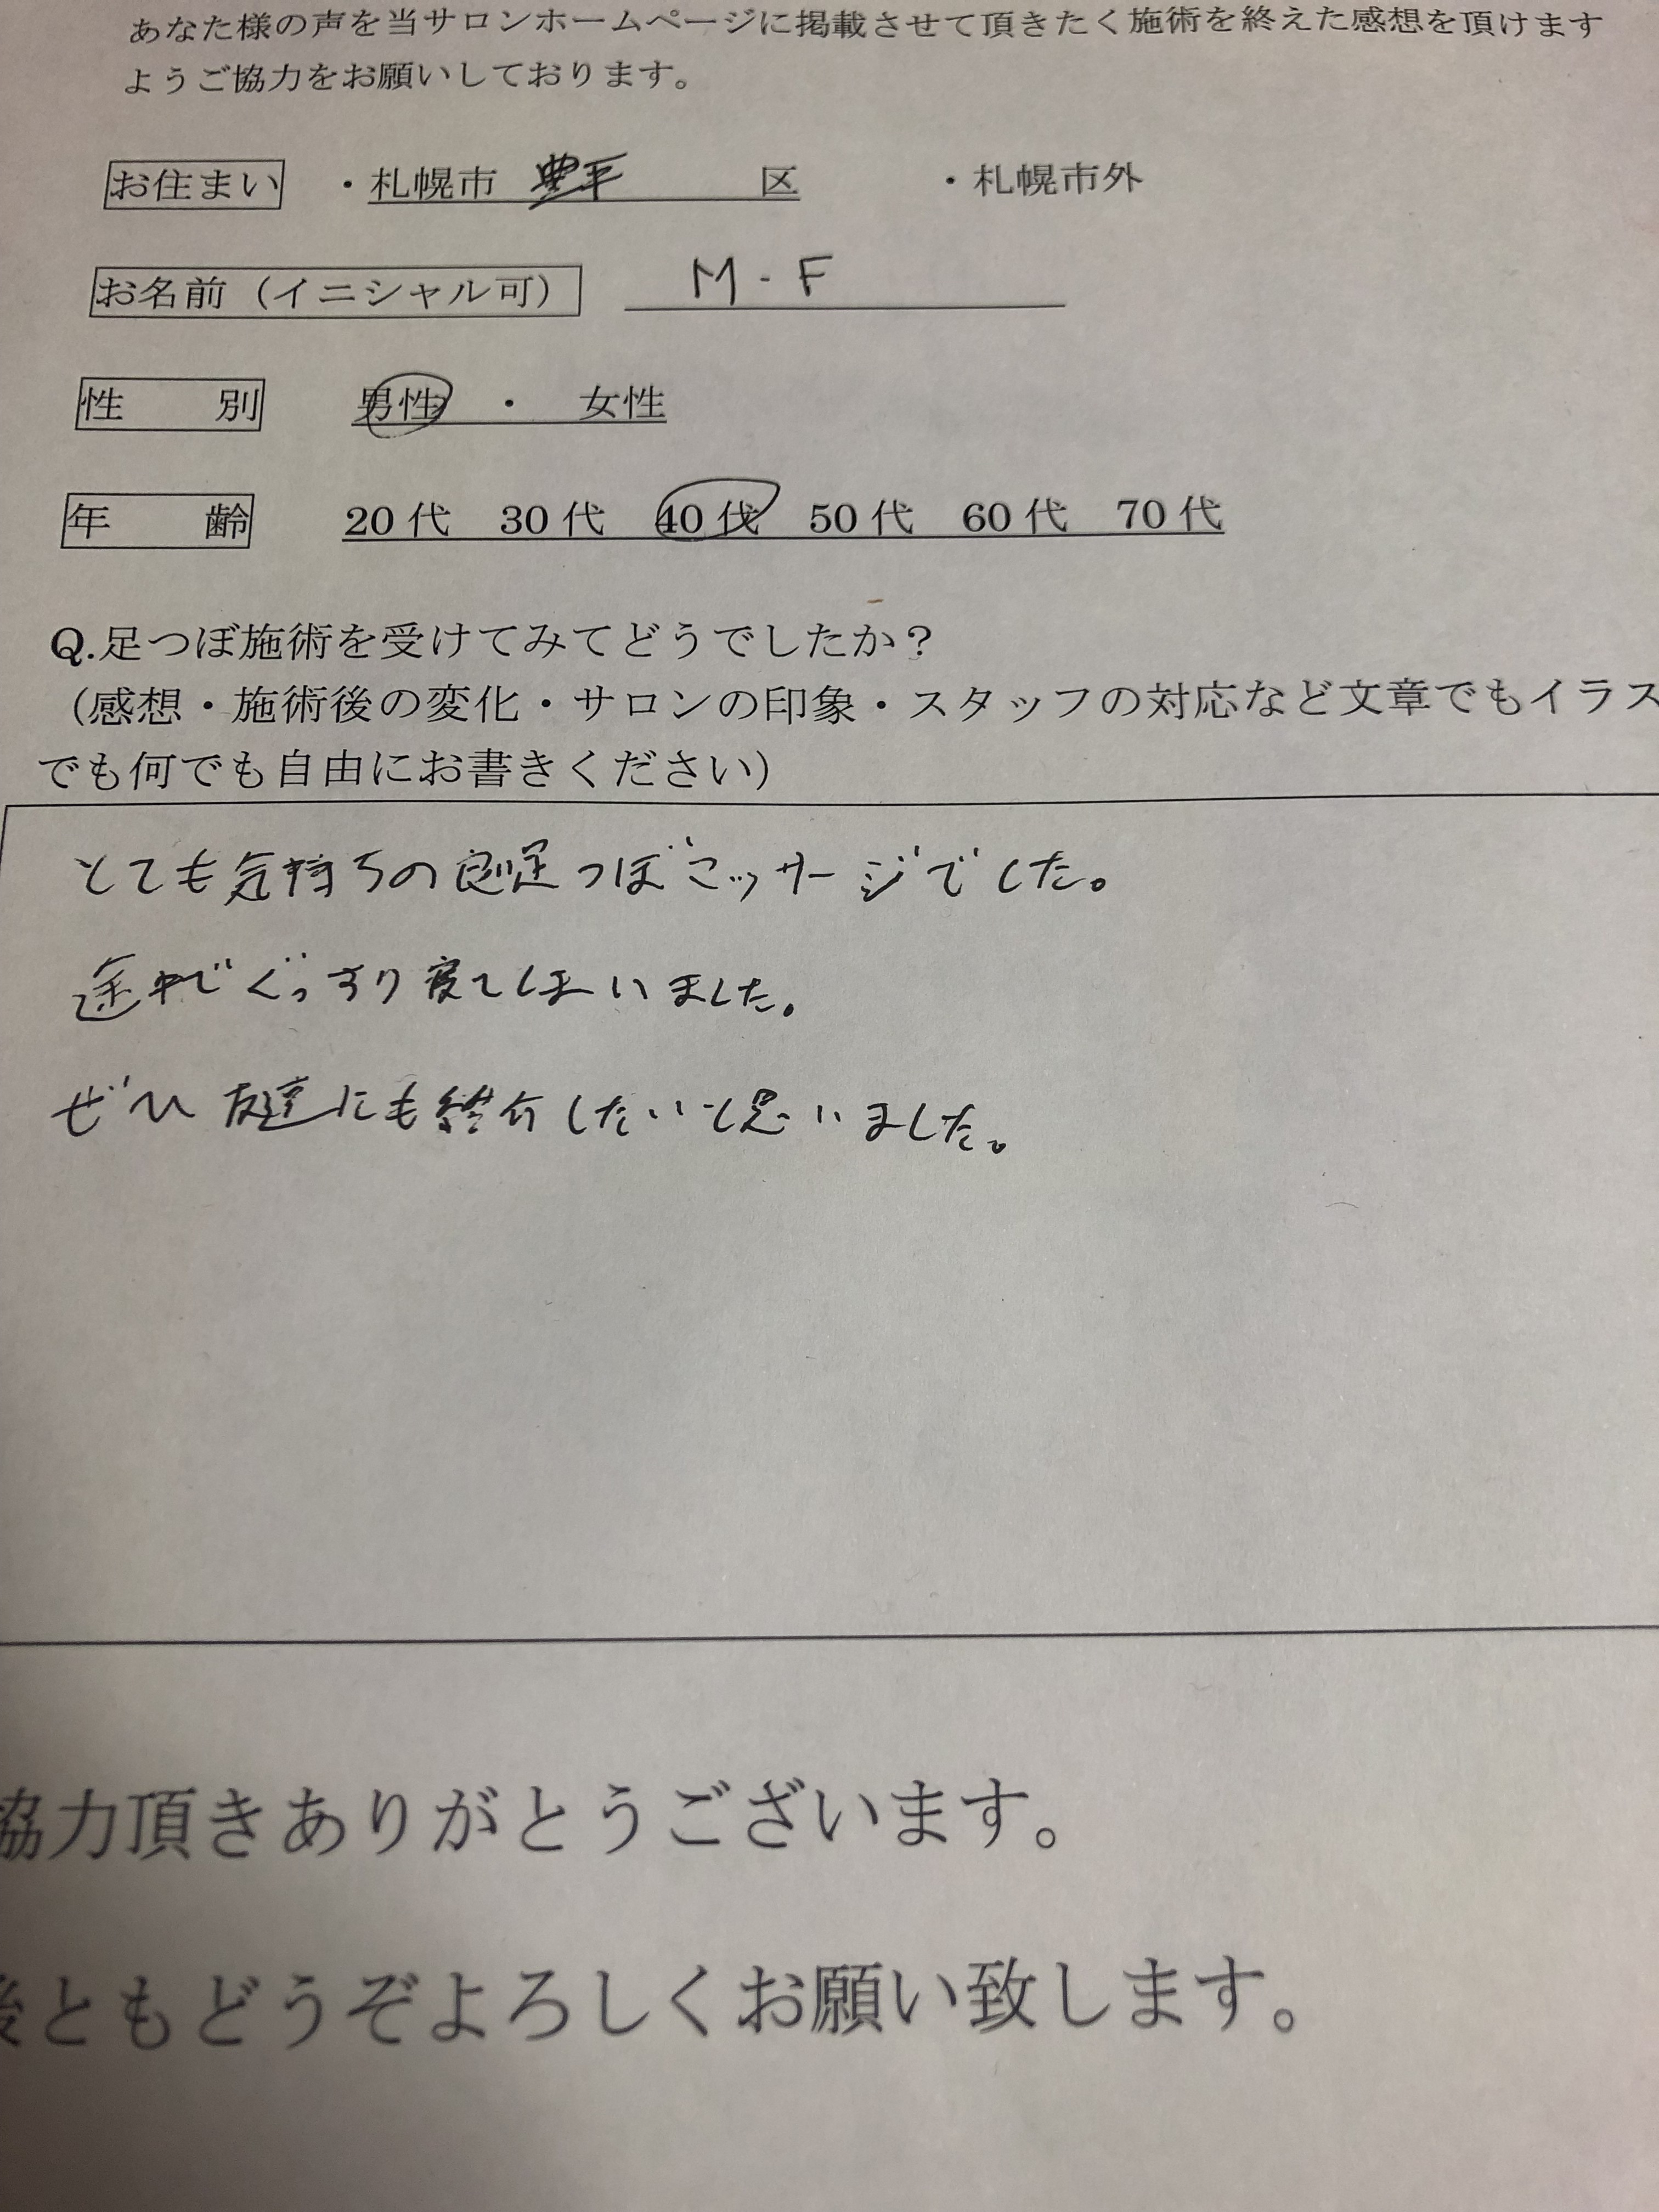 あなた様の声を当サロンホームページに掲載させて頂きたく施術を終えた感想を頂けます
ようご協力をお願いしております。
お住まい ・札幌市 豊平 区 ・札幌市外
お名前（イニシャル可） M-F
性 別 男性 ・ 女性
年 齢 20代 30代 40代 50代 60代 70代
Q.足つぼ施術を受けてみてどうでしたか？
（感想・施術後の変化・サロンの印象・スタッフの対応など文章でもイラス
でも何でも自由にお書きください）
とても気持ちの良い足つぼマッサージでした。
途中でぐっすり寝てしまいました。
ぜひ友達にも紹介したいと思いました。
協力頂きありがとうございます。
後ともどうぞよろしくお願い致します。